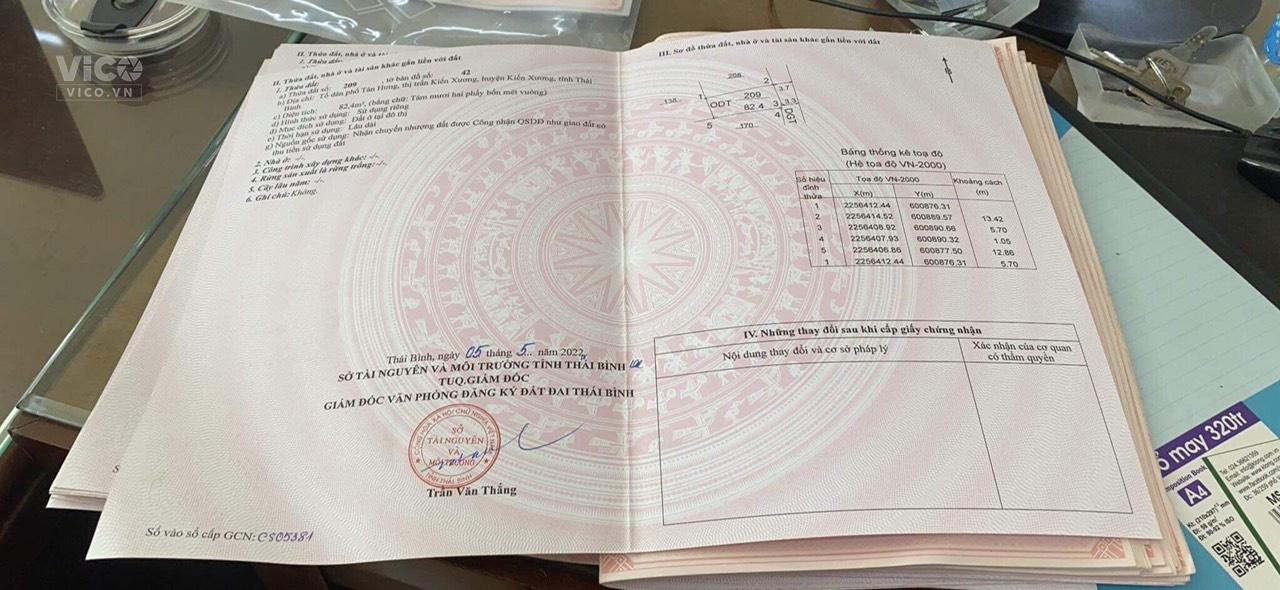 ViCO
VICO.VN
II. Thửa đất, nhà ở và
liền với đất
1. Thửa đất:
II. Thửa đất, nhà ở và tài sản khác gắn liền với đất
1. Thửa đất:
a) Thửa đất số: 209 , tờ bản đồ số: 42
b) Địa chỉ: Tổ dân phố Tân Hưng, thị trấn Kiến Xương, huyện Kiến Xương, tỉnh Thái
Bình
c) Diện tích: 82,4m², (bằng chữ: Tám mươi hai phẩy bốn mét vuông)
d) Hình thức sử dụng: Sử dụng riêng
đ) Mục đích sử dụng: Đất ở tại đô thị
e) Thời hạn sử dụng: Lâu dài
g) Nguồn gốc sử dụng: Nhận chuyển nhượng đất được Công nhận QSDĐ như giao đất có
thu tiền sử dụng đất
2. Nhà ở: -/-
3. Công trình xây dựng khác: -/-
4. Rừng sản xuất là rừng trồng: -/-
5. Cây lâu năm: -/-
6. Ghi chú: Không.
Thái Bình, ngày 05 tháng 5.. năm 2022
SỞ TÀI NGUYÊN VÀ MÔI TRƯỜNG TỈNH THÁI BÌNH
TUQ.GIÁM ĐỐC
GIÁM ĐỐC VĂN PHÒNG ĐĂNG KÝ ĐẤT ĐAI THÁI BÌNH
CỘNG HÒA XÃ HỘI CHỦ NGHĨA VIỆT NAM
SỞ
TÀI NGUYÊN
VÀ
MÔI TRƯỜNG
TỈNH THÁI BÌNH
Trần Văn Thắng
S
Số vào sổ cấp GCN: CS05381
III. Sơ đồ thửa đất, nhà ở và tài sản khác gắn liền với đất
208
2
3.7
138
1
209
ODT
82.4
3
3.3
4
ĐGT
5
170
Bảng thống kê toạ độ
(Hệ tọa độ VN-2000)
Số hiệu đỉnh thửa Tọa độ VN-2000 Khoảng cách (m)
X(m) Y(m)
1 2256412.44 600876.31
13.42
2 2256414.52 600889.57
5.70
3 2256408.92 600890.66
1.05
4 2256407.93 600890.32
12.86
5 2256406.86 600877.50
5.70
1 2256412.44 600876.31
IV. Những thay đổi sau khi cấp giấy chứng nhận
Nội dung thay đổi và cơ sở pháp lý
Xác nhận của cơ quan
có thẩm quyền
may 320tr
A4